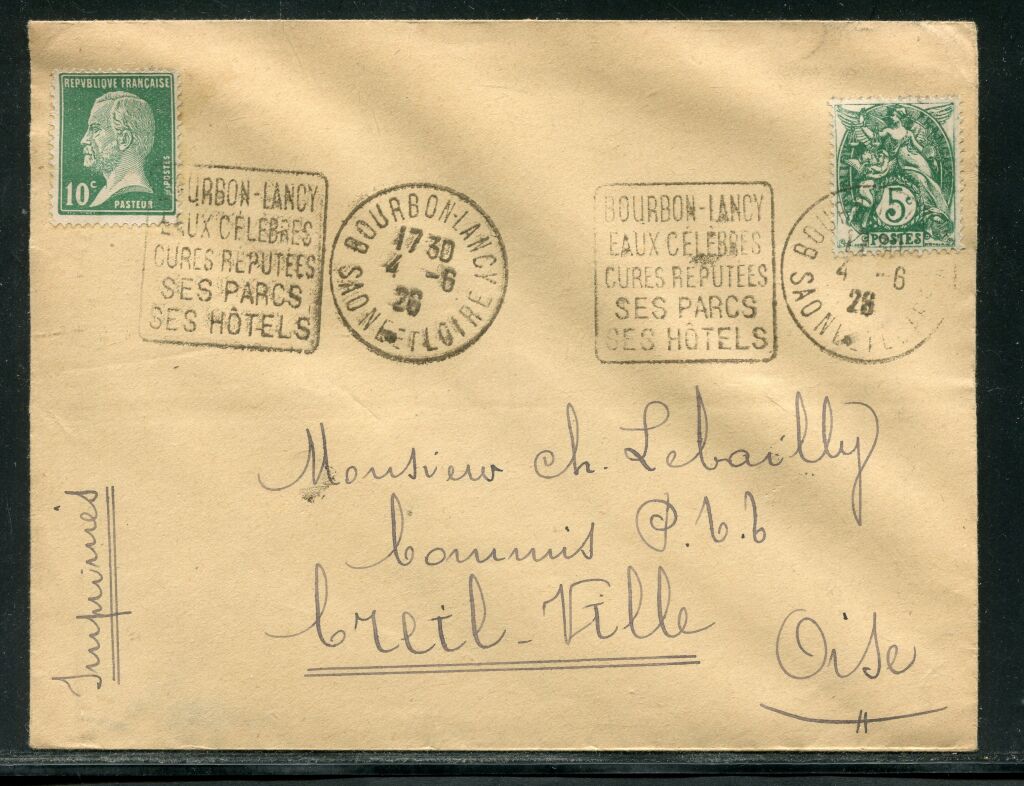 REPVBLIQUE FRANÇAISE
POSTES
10c
PASTEUR
5c
POSTES
BOURBON-LANCY
EAUX CÉLÈBRES
CURES RÉPUTÉES
SES PARCS
SES HÔTELS
BOURBON-LANCY
17 30
4 -6
26
SAONE ET LOIRE
BOURBON-LANCY
EAUX CÉLÈBRES
CURES RÉPUTÉES
SES PARCS
SES HÔTELS
4 -6
26
SAONE ET
Monsieur Ch. Lebailly
Commis P.t.t
Creil-Ville
Oise
Imprimés